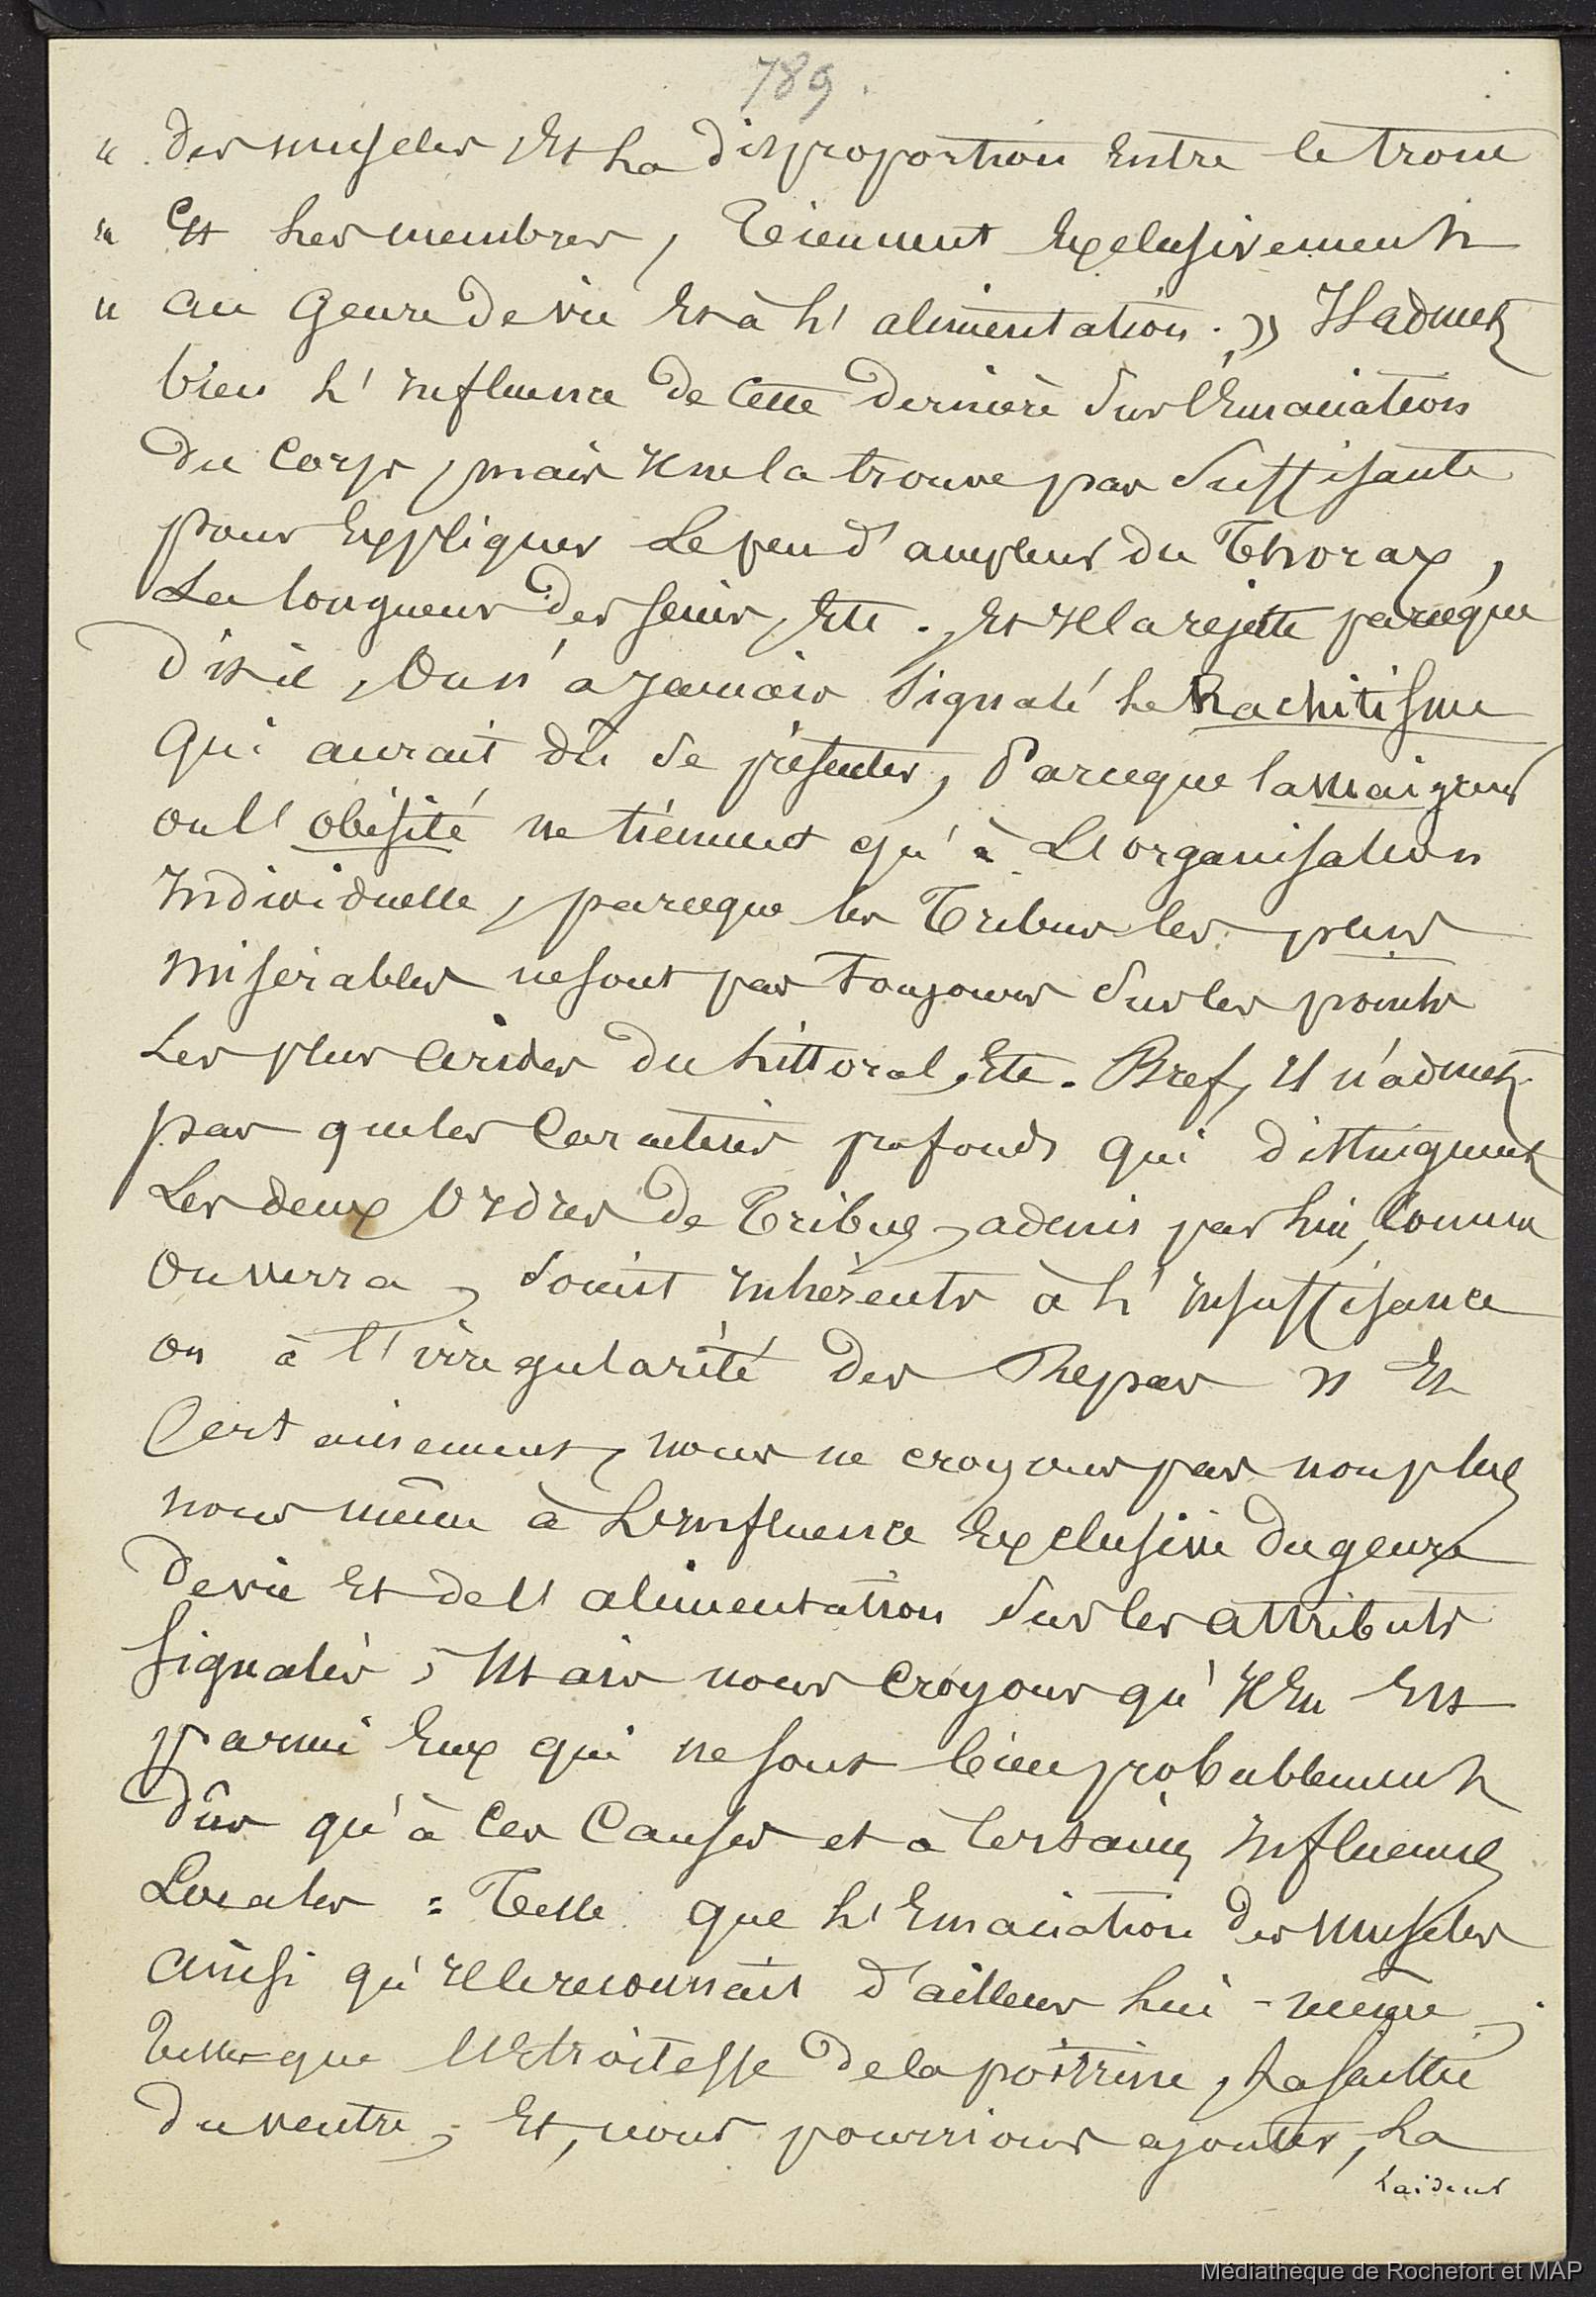 789.
« des muscles Et La disproportion Entre le tronc
« Et Les membres, Tiennent Exclusivement
« au Genre de vie Et à L'alimentation. » Il admet
bien L'Influence de Cette dernière Sur l'Emaciation
du Corps, mais Il ne la trouve pas Suffisante
pour Expliquer Le peu d'ampleur du Thorax,
La longueur des seins, Etc. Et Il la rejette parceque
dit-il, On n'a Jamais Signalé Le Rachitisme
Qui aurait dû Se présenter, Parceque la maigreur
ou l'obésité ne tiennent qu'à L'organisation
Individuelle, parceque les Tribus les plus
misérables ne sont pas Toujours Sur les points
Les plus Arides du Littoral, Etc. Bref, Il n'admet
pas que les Caractères profonds qui distinguent
Les deux Ordres de Tribus, admis par Lui, Comme
On verra, Soient Inhérents à L'Insuffisance
ou à l'irrégularité des Repas » Et
Certainement, nous ne croyons pas non plus
nous même à L'Influence Exclusive du genre
de vie Et de l'alimentation Sur les attributs
signalés ; Mais nous Croyons qu'Il En Est
parmi Eux qui ne sont bien probablement
dûs qu'à Ces Causes et à Certaines Influences
Locales : Telle que L'Emaciation des muscles
Ainsi qu'Il le reconnait d'ailleurs Lui-même ;
Telle que l'Etroitesse de la poitrine, La saillie
du ventre, Et, nous pourrions ajouter, La
Laideur
Médiathèque de Rochefort et MAP